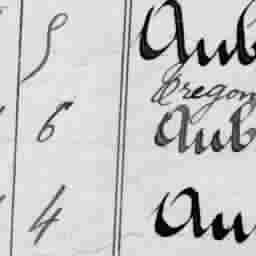 9 Aub
Oregon
6 Aub
4 Au